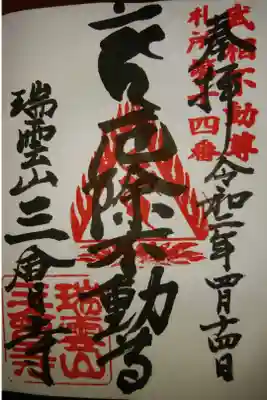 武相不動尊
札所第十四番
奉拝
令和二年四月十四日
厄除不動尊
瑞雲山三會寺
瑞雲山
三會寺